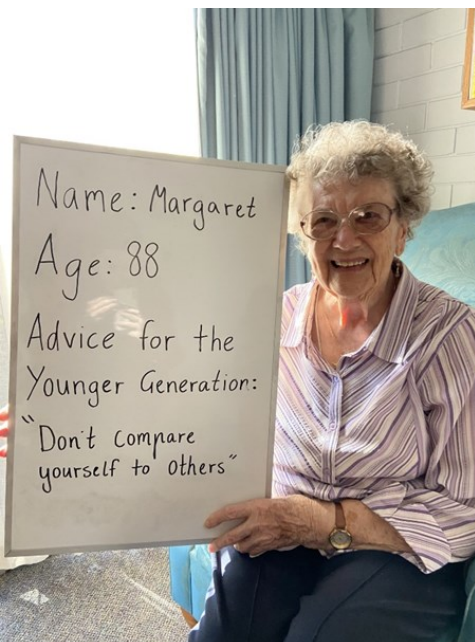 Name: Margaret
Age: 88
Advice for the
Younger Generation:
"Don't compare
yourself to others"